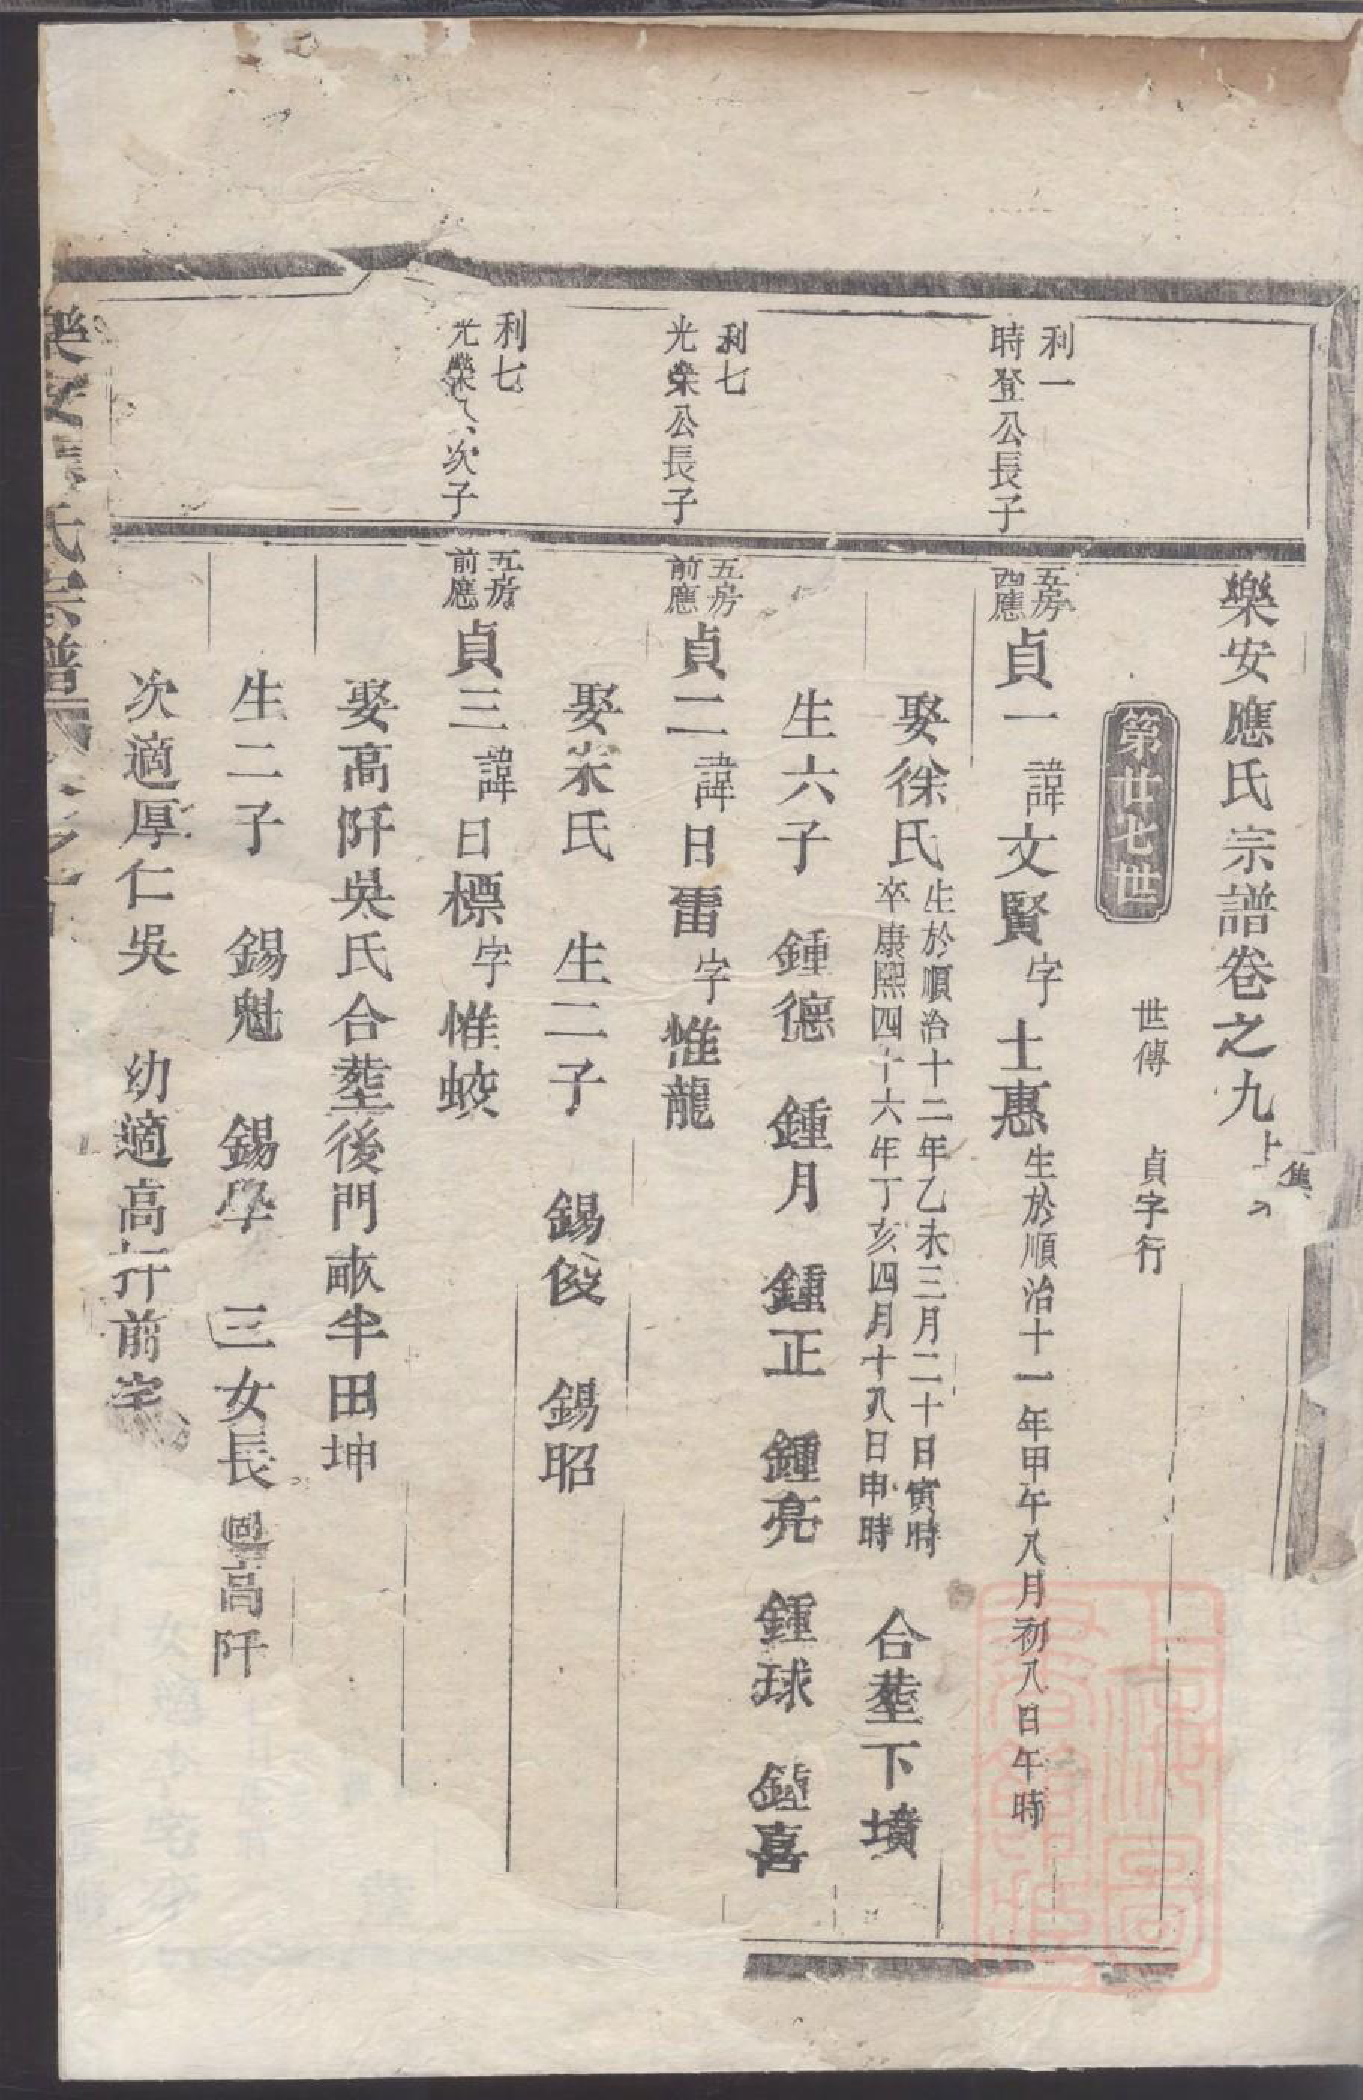 樂安應氏宗譜卷之九上集
第廿七世
世傳 貞字行
利一
時登公長子
五房
西應
貞一諱文賢字士惠生於順治十一年甲午八月初八日午時
娶徐氏生於順治十二年乙未三月二十日寅時
卒康熙四十六年丁亥四月十八日申時
合塟下墳
生六子 鍾德 鍾月 鍾正 鍾亮 鍾球 鍾喜
利七
光榮公長子
五房
前應
貞二諱日雷字惟龍
娶宋氏 生二子 錫俊 錫昭
利七
光榮公次子
五房
前應
貞三諱日標字惟蛟
娶高阡吳氏合塟後門畝半田坤
生二子 錫魁 錫學 三女長適高阡
次適厚仁吳 幼適高阡前宅
樂安應氏宗譜
上海圖書館藏